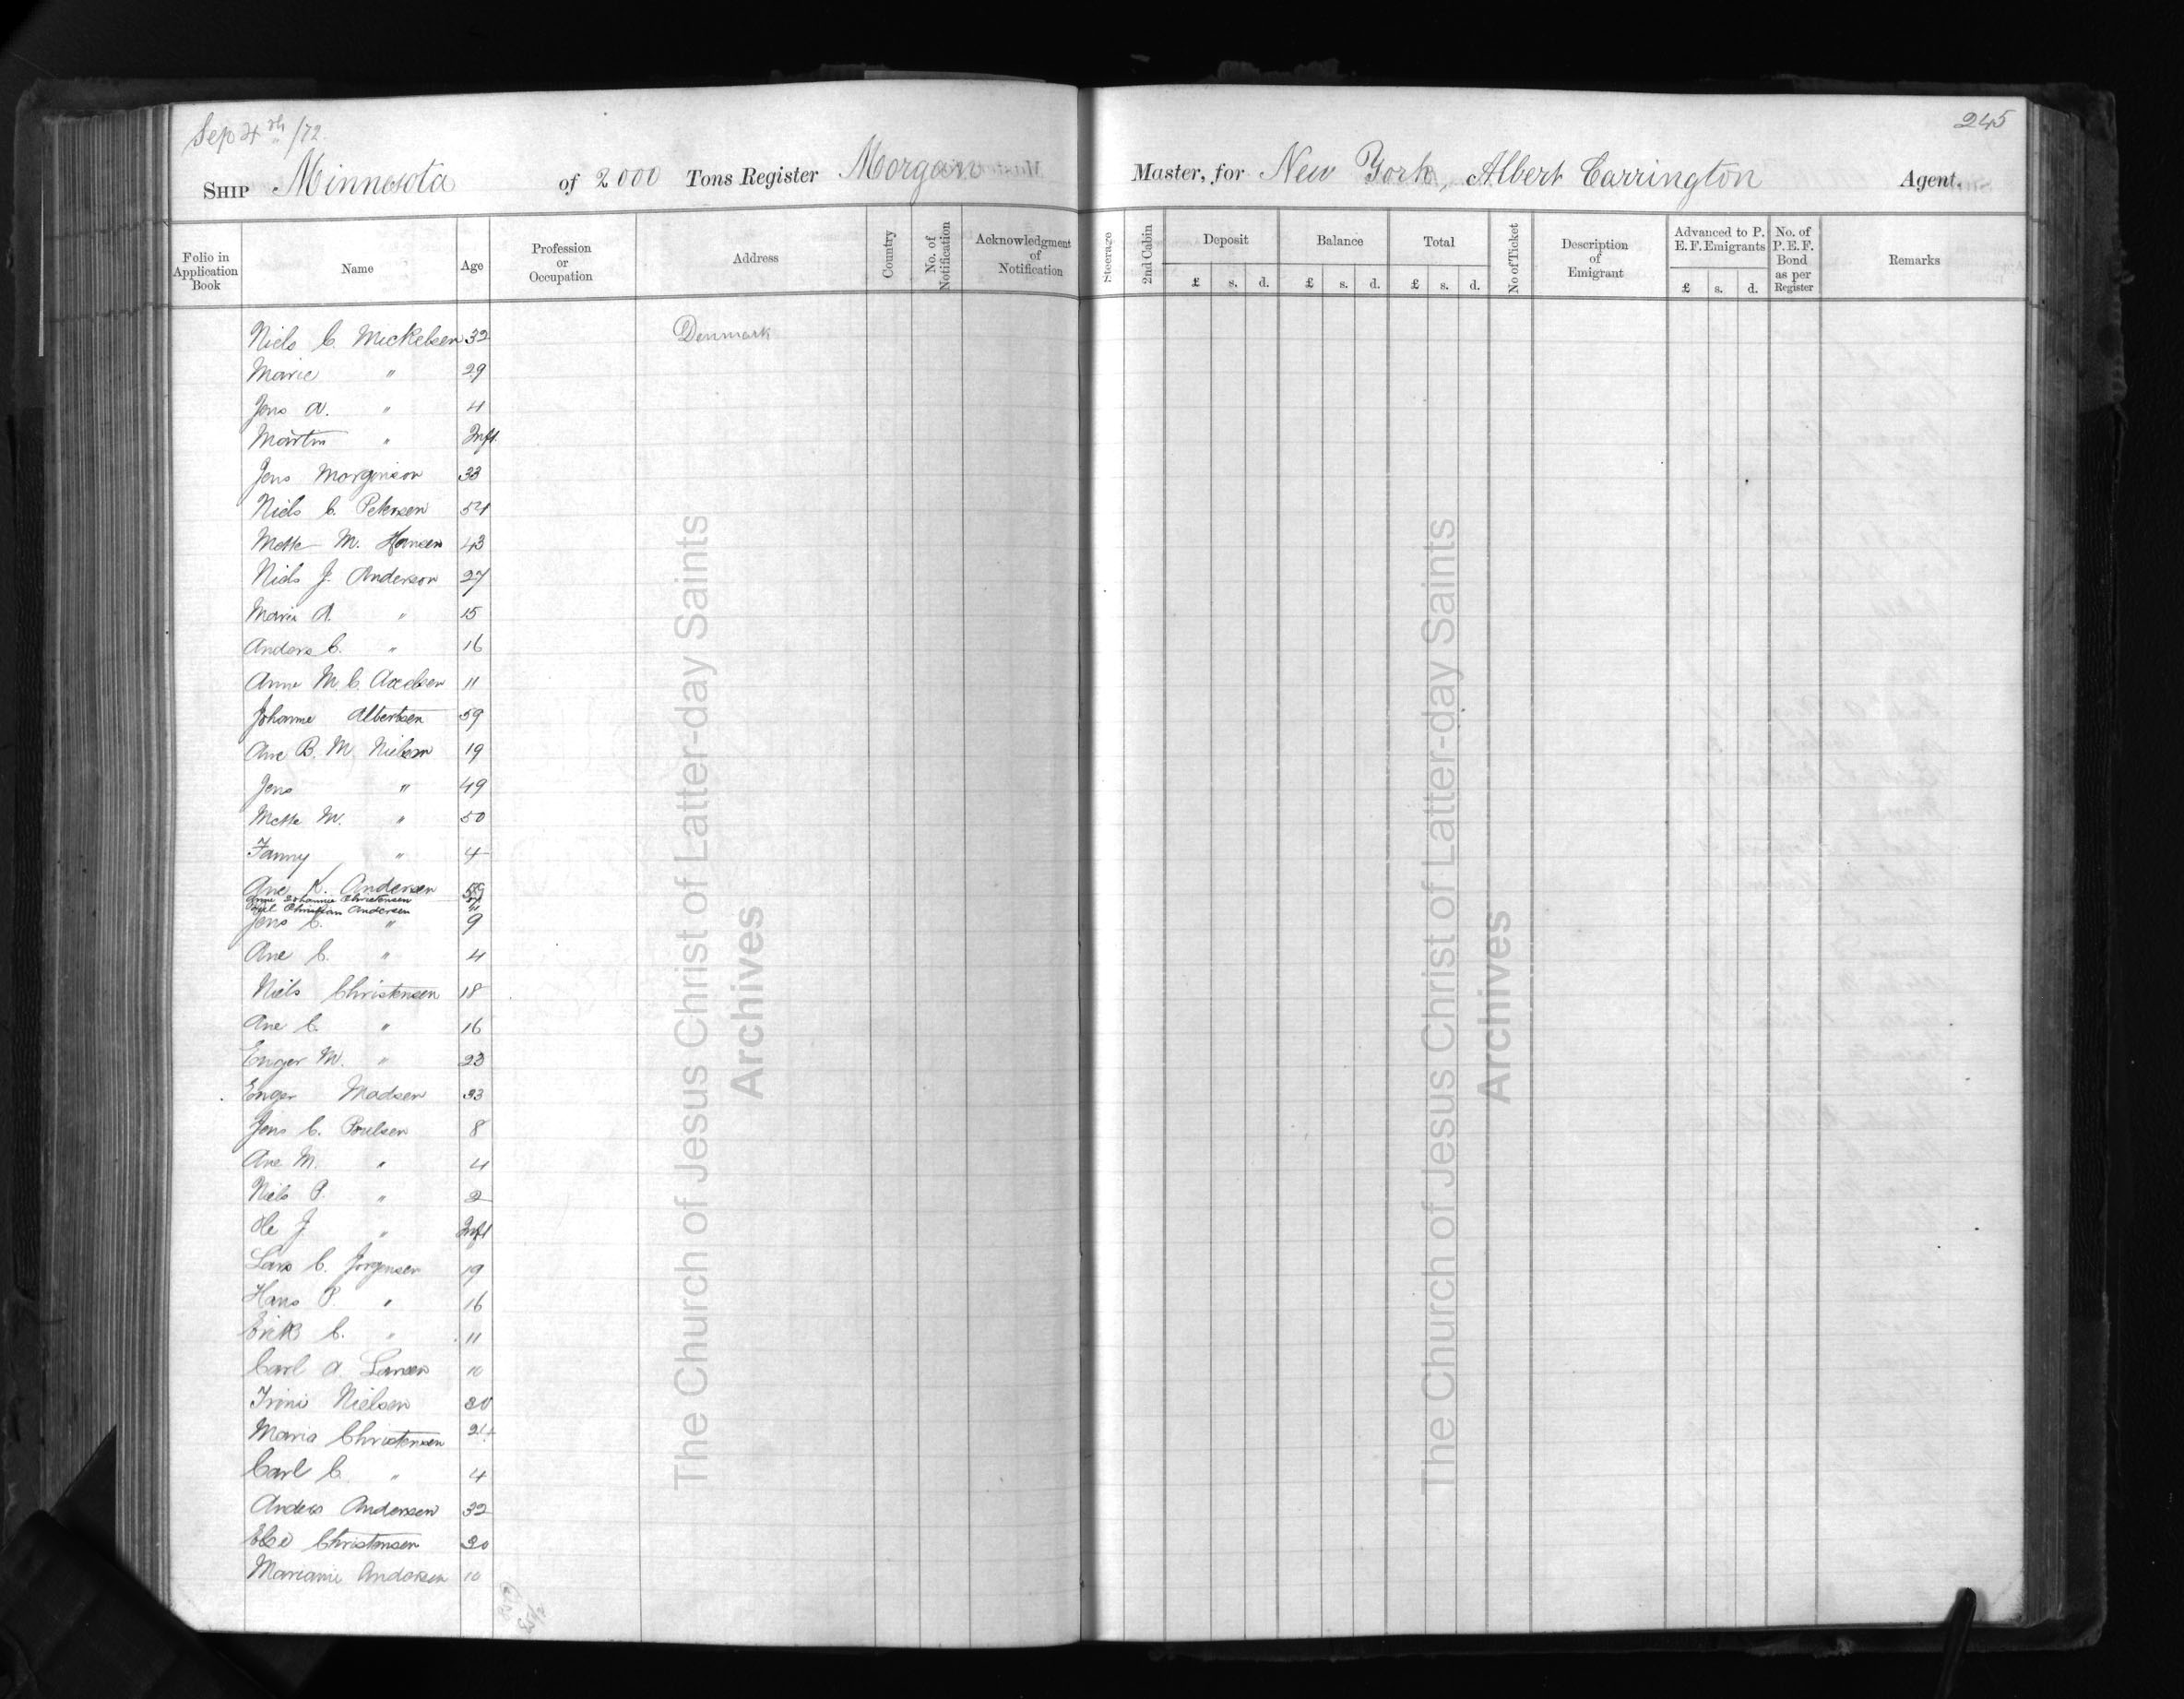 Sep 4th /72
245
Ship Minnesota of 2000 Tons Register Morgan Master, for New York, Albert Carrington Agent.
Folio in Application Book Name Age Profession or Occupation Address Country No. of Notification Acknowledgment of Notification Steerage 2nd Cabin Deposit £ s. d. Balance £ s. d. Total £ s. d. No of Ticket Description of Emigrant Advanced to P. E. F. Emigrants £ s. d. No. of P. E. F. Bond as per Register Remarks
Niels C. Mickelsen 32 Denmark
Marie " 29
Jens A. " 4
Martin " Inft.
Jens Morgenson 33
Niels C. Petersen 54
Mette M. Hansen 43
Niels J. Anderson 27
Marie A. " 15
Anders C. " 16
Anne M. C. Axelsen 11
Johanne Albertsen 59
Ane B. M. Nielsen 19
Jens " 49
Mette M. " 50
Fanny " 4
Ane K. Andersen
Anne Johannie Christensen
Christian Andersen
Jens C. " 9
Ane C. " 4
Niels Christensen 18
Ane C. " 16
Enger M. " 23
Enger Madsen 33
Jens C. Poulsen 8
Ane M. " 4
Niels P. " 2
Ole J " Inft
Lars C. Jorgensen 19
Hans P. " 16
Erik C. " 11
Carl A. Larsen 10
Trine Nielsen 20
Maria Christensen 24
Carl C. " 4
Anders Andersen 32
Else Christensen 20
Mariane Andersen 10
The Church of Jesus Christ of Latter-day Saints
Archives
The Church of Jesus Christ of Latter-day Saints
Archives